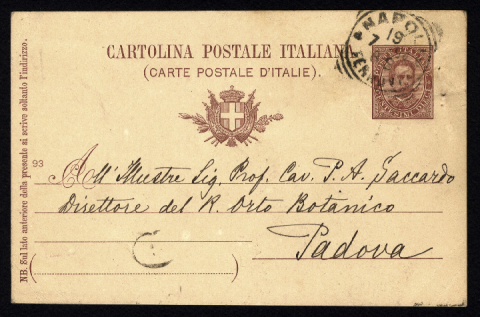 NAPOLI
7 19
CARTOLINA POSTALE ITALIANA
(CARTE POSTALE D'ITALIE).
NB. Sul lato anteriore della presente si scrive soltanto l'indirizzo.
93
All' Illustre Sig. Prof. Cav. P. A. Saccardo
Direttore del R. Orto Botanico
Padova